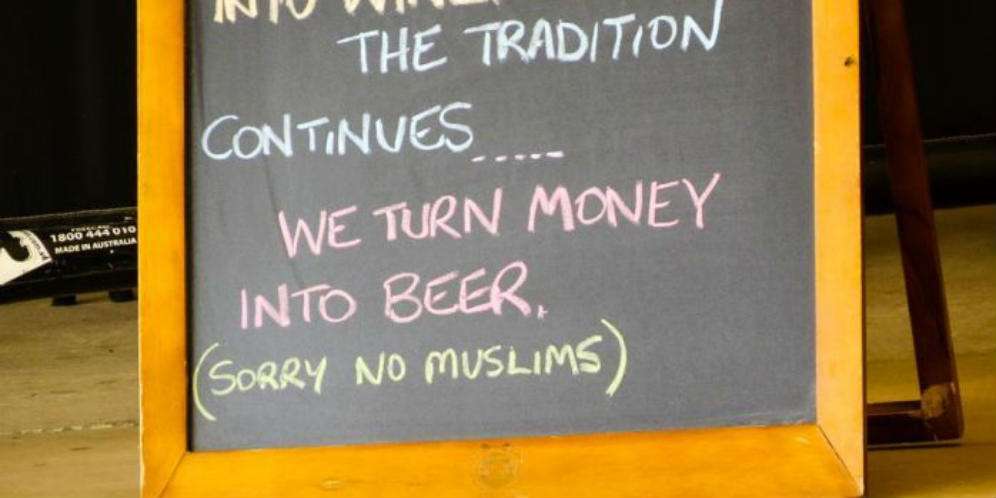 INTO
THE TRADITION
CONTINUES.....
WE TURN MONEY
INTO BEER.
(SORRY NO MUSLIMS)
1800 444 010
MADE IN AUSTRALIA